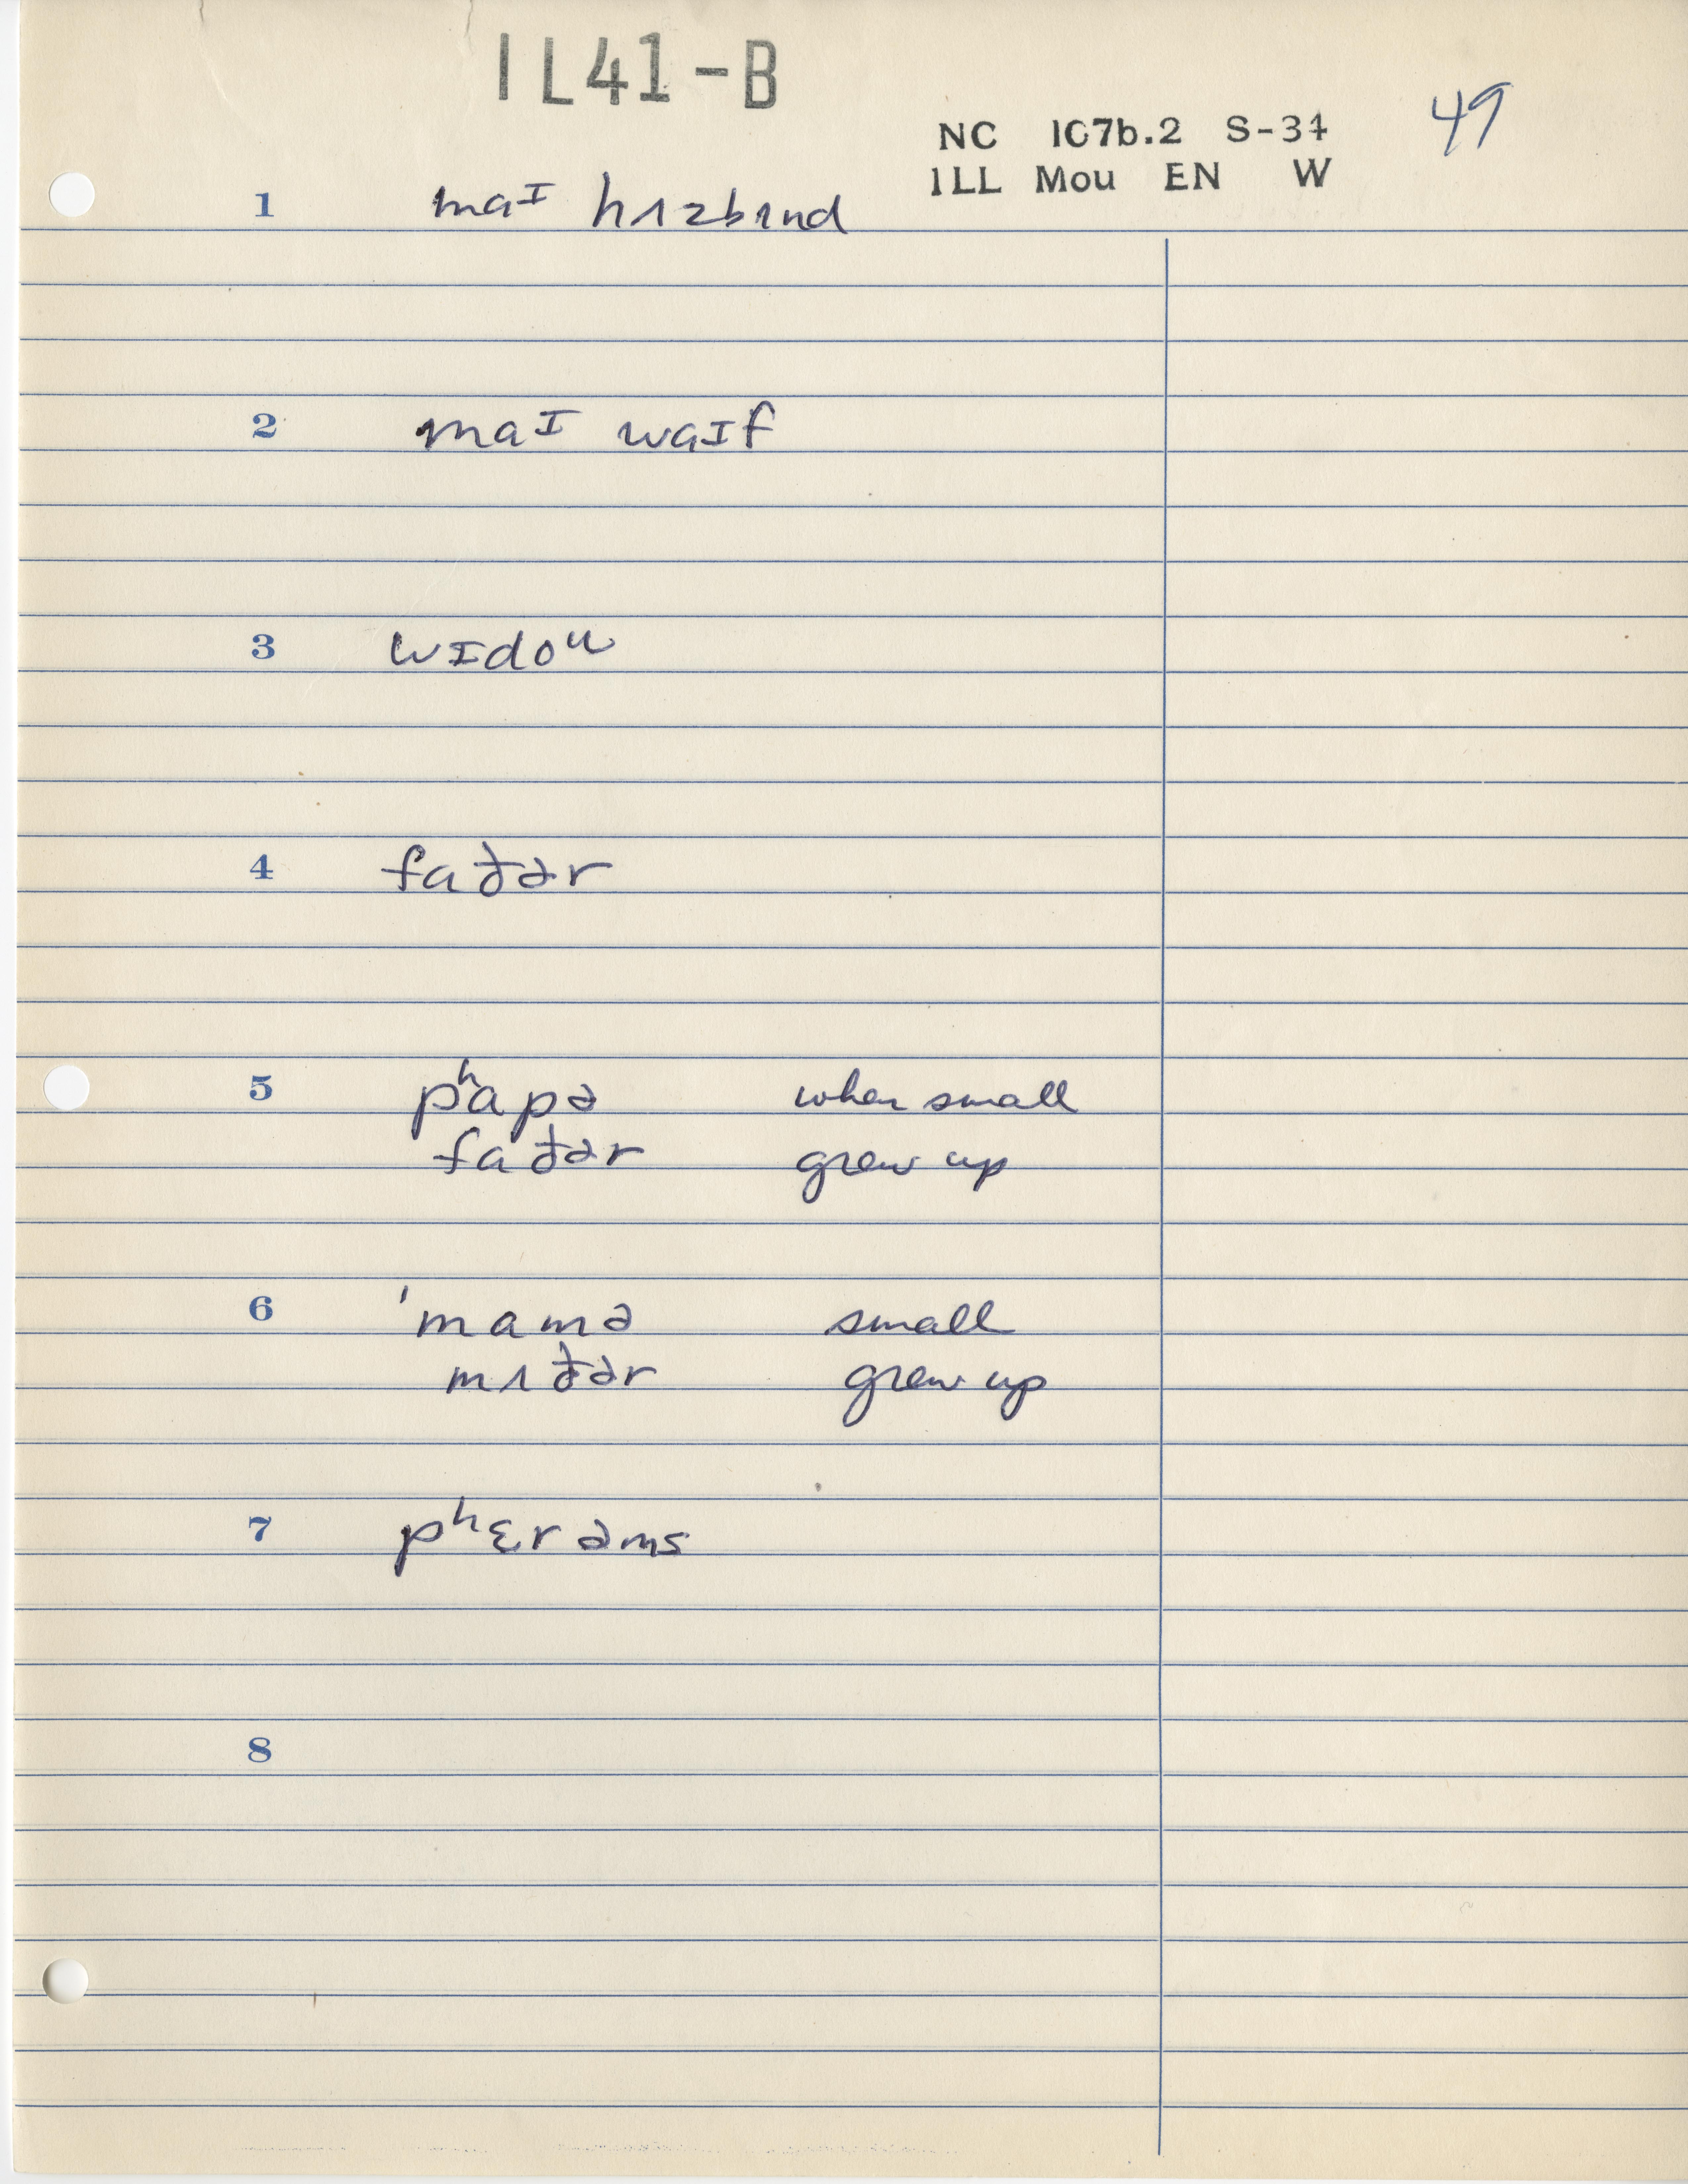 IL41-B
NC 107b.2 S-34 49
ILL Mou EN W
1 maᴵ hʌzbɪnd
2 maᴵ waɪf
3 wɪdoᵘ
4 faðər
5 pʰapə when small
faðər grew up
6 ˈmamə small
mʌðər grew up
7 pʰɛrəms
8